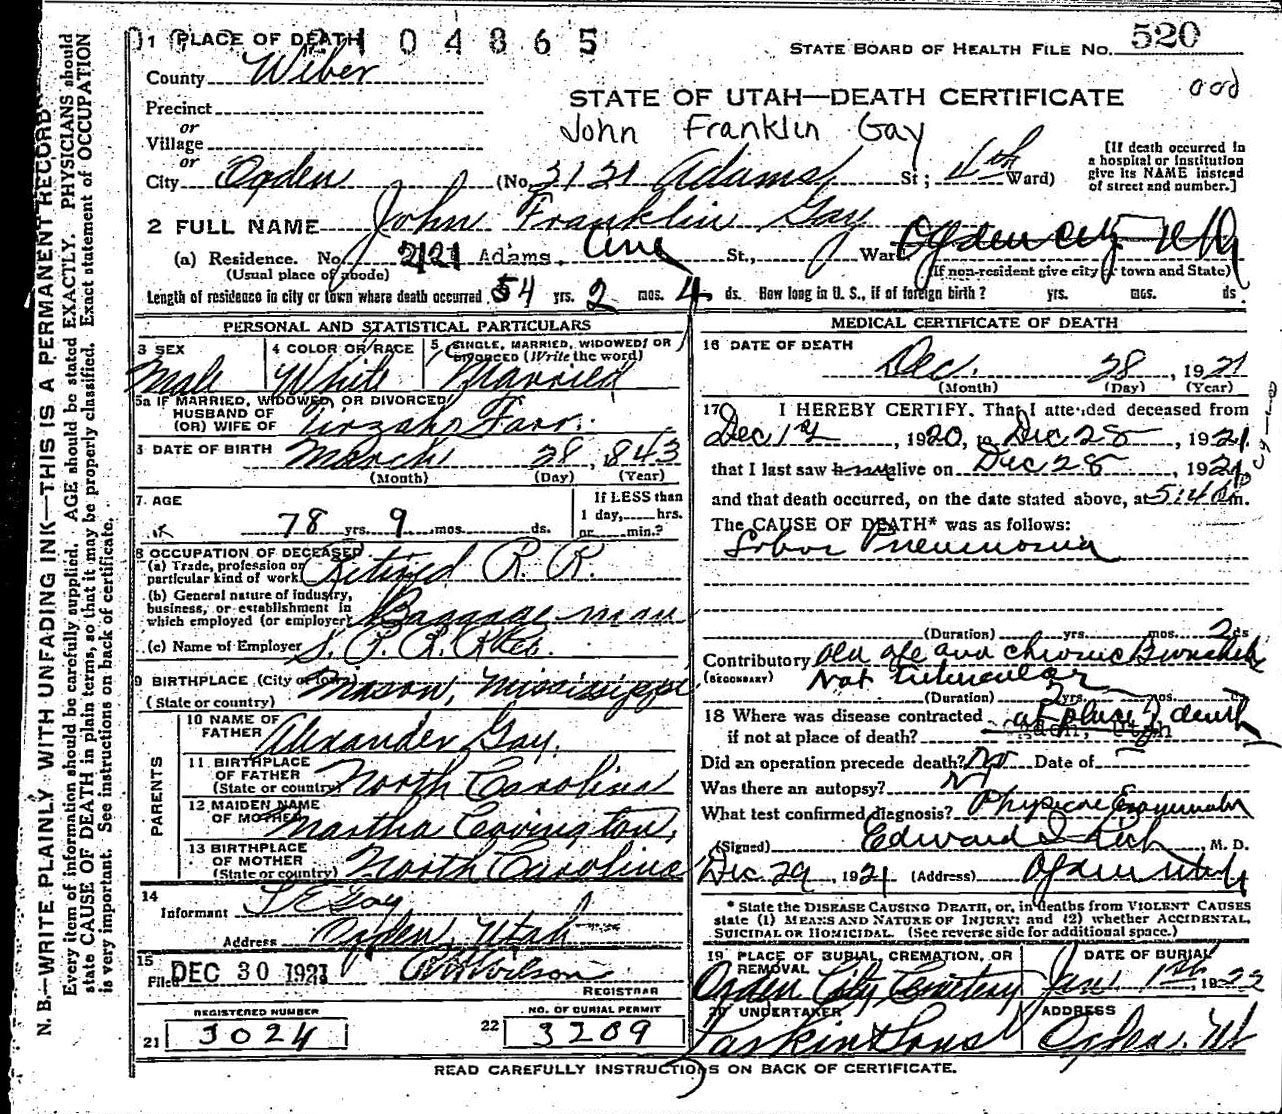 1 PLACE OF DEATH
04865
STATE BOARD OF HEALTH FILE No. 520
County Weber
Precinct
or
Village
or
City Ogden (No. 3121 Adams St; 4th Ward)
STATE OF UTAH—DEATH CERTIFICATE
John Franklin Gay
[If death occurred in
a hospital or institution
give its NAME instead
of street and number.]
2 FULL NAME John Franklin Gay
(a) Residence. No. 2121 Adams. Ave St., Ward Ogden City
(Usual place of abode) (If non-resident give city or town and State)
Length of residence in city or town where death occurred 54 yrs. 2 mos. 4 ds. How long in U. S., if of foreign birth? yrs. mos. ds.
PERSONAL AND STATISTICAL PARTICULARS
3 SEX 4 COLOR OR RACE 5 SINGLE, MARRIED, WIDOWED, OR
DIVORCED (Write the word)
Male White Married
5a IF MARRIED, WIDOWED, OR DIVORCED
HUSBAND OF
(OR) WIFE OF Tirzah Farr.
DATE OF BIRTH March 28, 1843
(Month) (Day) (Year)
7. AGE If LESS than
1 day, hrs.
78 yrs. 9 mos. ds. or min.?
8 OCCUPATION OF DECEASED
(a) Trade, profession or
particular kind of work Retired R. R.
(b) General nature of industry,
business, or establishment in
which employed (or employer) Baggage man
(c) Name of Employer S. P. R. R.
9 BIRTHPLACE (City or Town) Mason, Mississippi
(State or country)
PARENTS
10 NAME OF
FATHER Alexander Gay.
11 BIRTHPLACE
OF FATHER
(State or country) North Carolina
12 MAIDEN NAME
OF MOTHER Martha Covington,
13 BIRTHPLACE
OF MOTHER
(State or country) North Carolina
14
Informant Gay
Address Ogden, Utah
15
Filed DEC 30 1921 Wilson
REGISTRAR
REGISTERED NUMBER NO. OF BURIAL PERMIT
21 3024 22 3209
MEDICAL CERTIFICATE OF DEATH
16 DATE OF DEATH
Dec. 28, 1921
(Month) (Day) (Year)
17 I HEREBY CERTIFY, That I attended deceased from
Dec 1st, 1920, to Dec 28, 1921
that I last saw him alive on Dec 28, 1921
and that death occurred, on the date stated above, at 5:40 m.
The CAUSE OF DEATH* was as follows:
Lobar Pneumonia
(Duration) yrs. mos. 2 ds
Contributory Old age and chronic Bronchitis
(SECONDARY) Not tubercular
(Duration) 2 yrs. mos.
18 Where was disease contracted at place of death
if not at place of death?
Did an operation precede death? No Date of
Was there an autopsy? No
What test confirmed diagnosis? Physical Examination
(Signed) Edward I. Rich, M. D.
Dec 29, 1921 (Address) Ogden Utah
* State the DISEASE CAUSING DEATH, or, in deaths from VIOLENT CAUSES
state (1) MEANS AND NATURE OF INJURY; and (2) whether ACCIDENTAL,
SUICIDAL OR HOMICIDAL. (See reverse side for additional space.)
19 PLACE OF BURIAL, CREMATION, OR
REMOVAL DATE OF BURIAL
Ogden City Cemetery Jan 1st, 1922
20 UNDERTAKER ADDRESS
Larkin & Sons Ogden, Ut
READ CAREFULLY INSTRUCTIONS ON BACK OF CERTIFICATE.
N. B.—WRITE PLAINLY WITH UNFADING INK—THIS IS A PERMANENT RECORD
Every item of information should be carefully supplied. AGE should be stated EXACTLY. PHYSICIANS should
state CAUSE OF DEATH in plain terms, so that it may be properly classified. Exact statement of OCCUPATION
is very important. See instructions on back of certificate.